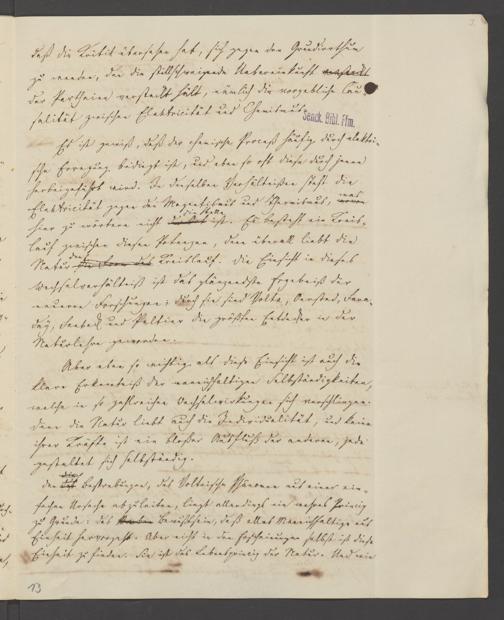 daß die Kritik übersehen hat, sich gegen den Grundirrthum
zu wenden, den die stillschweigende Uebereinkunft
der Partheien versteckt hält, nämlich die vorgebliche Cau-
salität zwischen Elektricität und Chemismus.
Senck. Bibl. Ffm.
Es ist gewiß, daß der chemische Proceß häufig durch elektri-
sche Erregung bedingt ist, und eben so oft diese durch jenen
herbeigeführt wird. In denselben Verhältnissen steht die
Elektricität gegen den Magnetismus und Thermismus, was
hier zu erörtern nicht die Stelle ist. Es besteht ein Kreis-
lauf zwischen diesen Potenzen, denn überall liebt die
Natur den Kreislauf. Die Einsicht in dieses
Wechselverhältniß ist das glänzendste Ergebniß der
neueren Forschungen: durch sie sind Volta, Oersted, Fara-
day, Seebeck und Peltier die größten Entdecker in der
Naturlehre geworden.
Aber eben so wichtig als diese Einsicht ist auch die
klare Erkenntniß der mannichfaltigen Selbständigkeiten,
welche in so zahlreichen Wechselwirkungen sich verschlingen.
Denn die Natur liebt auch die Individualität, und keine
ihrer Kräfte ist ein bloßer Ausfluß der anderen, jede
gestaltet sich selbständig.
den Bestrebungen, das Voltaische Phänomen aus einer ein-
fachen Ursache abzuleiten, liegt allerdings ein wahres Prinzip
zu Grunde: das Bewußtsein, daß alles Mannichfaltige aus
Einheit hervorgeht. Aber nicht in den Erscheinungen selbst ist diese
Einheit zu finden. Sie ist das Lebensprinzip der Natur. Und wie
13